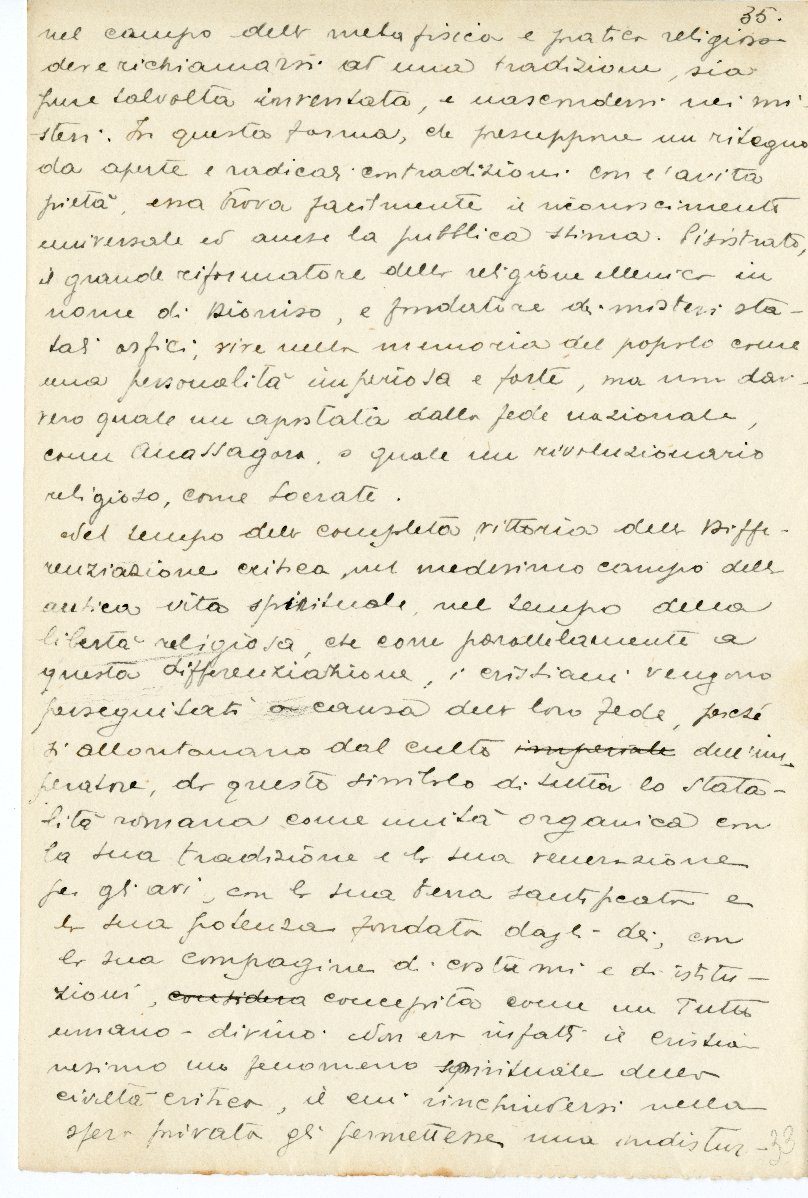 35.
nel campo della metafisica e pratica religiosa
deve richiamarsi ad una tradizione, sia
pure talvolta inventata, e nascondersi nei mi-
steri. In questa forma, che presuppone un ritegno
da aperte e radicali contradizioni con l'avita
pietà, essa trova facilmente il riconoscimento
universale ed anche la pubblica stima. Pisistrato,
il grande riformatore della religione ellenica in
nome di Dioniso, e fondatore di misteri sta-
tali orfici, vive nella memoria del popolo come
una personalità imperiosa e forte, ma non dav-
vero quale un apostata dalla fede nazionale,
come Anassagora, o quale un rivoluzionario
religioso, come Socrate.
Nel tempo della completa vittoria della Diffe-
renziazione critica nel medesimo campo dell'
antica vita spirituale, nel tempo della
libertà religiosa, che corre parallelamente a
questa differenziazione, i cristiani vengono
perseguitati a causa della loro Fede, perché
si allontanano dal culto imperiale dell'im-
peratore, da questo simbolo di tutta la stata-
lità romana come unità organica con
la sua tradizione e la sua venerazione
per gli avi, con la sua terra santificata e
la sua potenza fondata dagli dei, con
la sua compagine di costumi e di istitu-
zioni, considera concepita come un Tutto
umano-divino. Non era infatti il Cristia-
nesimo un fenomeno spirituale della
civiltà critica, il cui rinchiudersi nella
sfera privata gli permettesse una indistur-
33